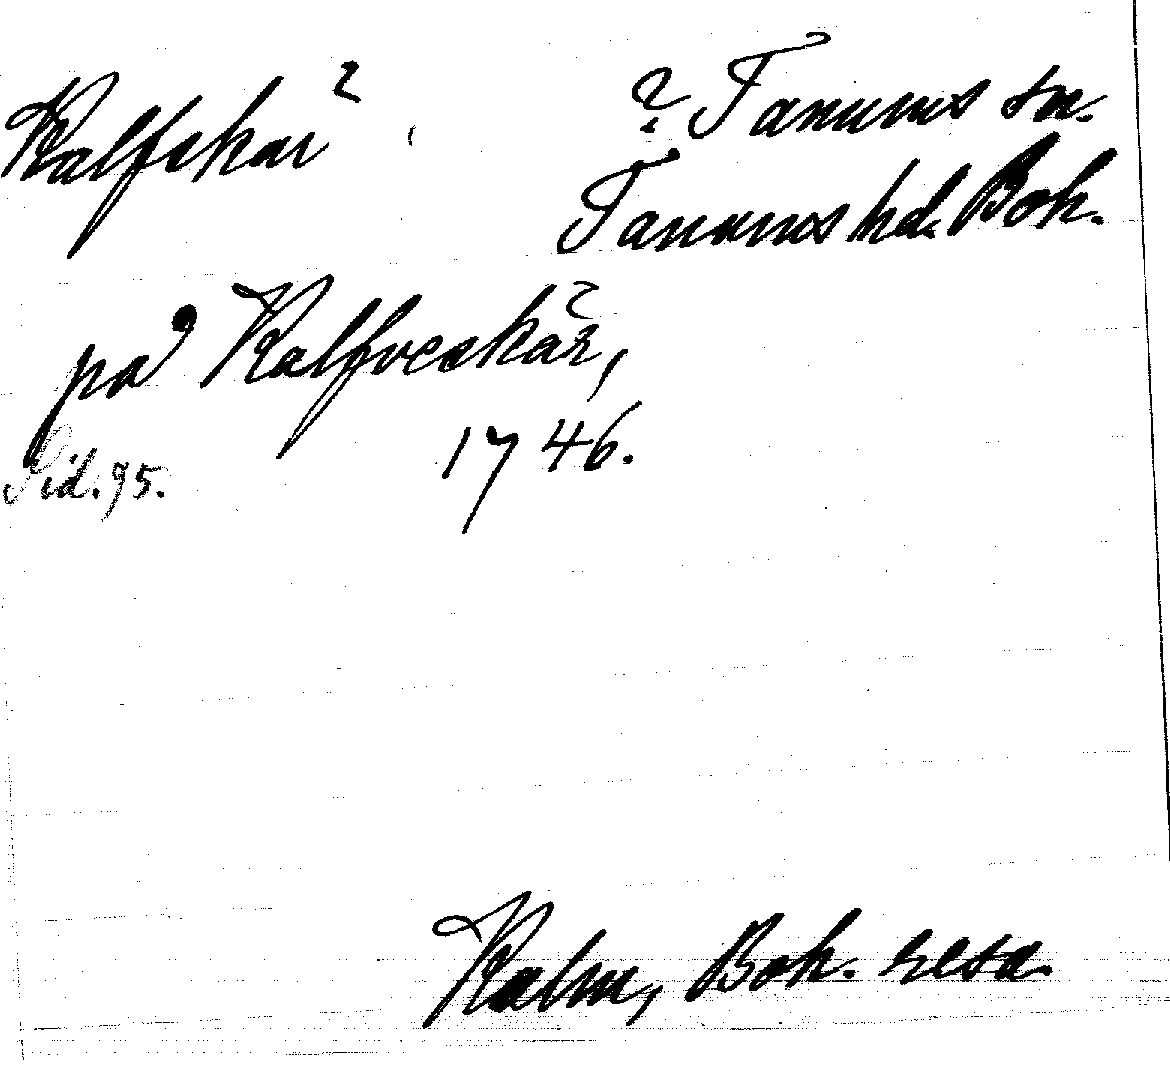 Kalfskär ? Tanums sn.
Tanums hd. Boh.
på Kalfveskär,
1746.
Sid. 95.
Kalm, Boh. resa.